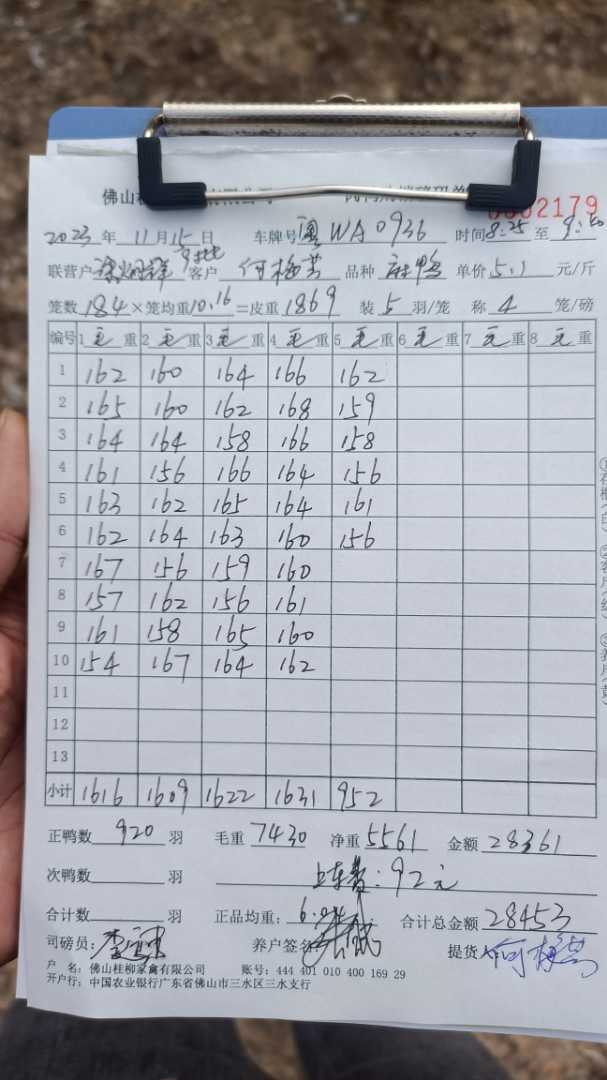 佛山桂
0002179
2023 年 11 月 15 日 车牌号 粤WA0936 时间 8:25 至 9:50
联营户 客户 何梅芳 品种 麻鸭 单价 5.1 元/斤
笼数 184 ×笼均重 10.16 =皮重 1869 装 5 羽/笼 称 4 笼/磅
编号 1 毛 重 2 毛 重 3 毛 重 4 毛 重 5 毛 重 6 毛 重 7 毛 重 8 毛 重
1 162 160 164 166 162
2 165 160 162 168 159
3 164 164 158 166 158
4 161 156 166 164 156
5 163 162 165 164 161
6 162 164 163 160 156
7 167 156 159 160
8 157 162 156 161
9 161 158 165 160
10 154 167 164 162
11
12
13
小计 1616 1609 1622 1631 952
正鸭数 920 羽 毛重 7430 净重 5561 金额 28361
次鸭数 羽 上车费:92元
合计数 羽 正品均重: 合计总金额 28453
司磅员: 养户签名: 提货人
户 名: 佛山桂柳家禽有限公司 账号: 444 401 010 400 169 29
开户行: 中国农业银行广东省佛山市三水区三水支行